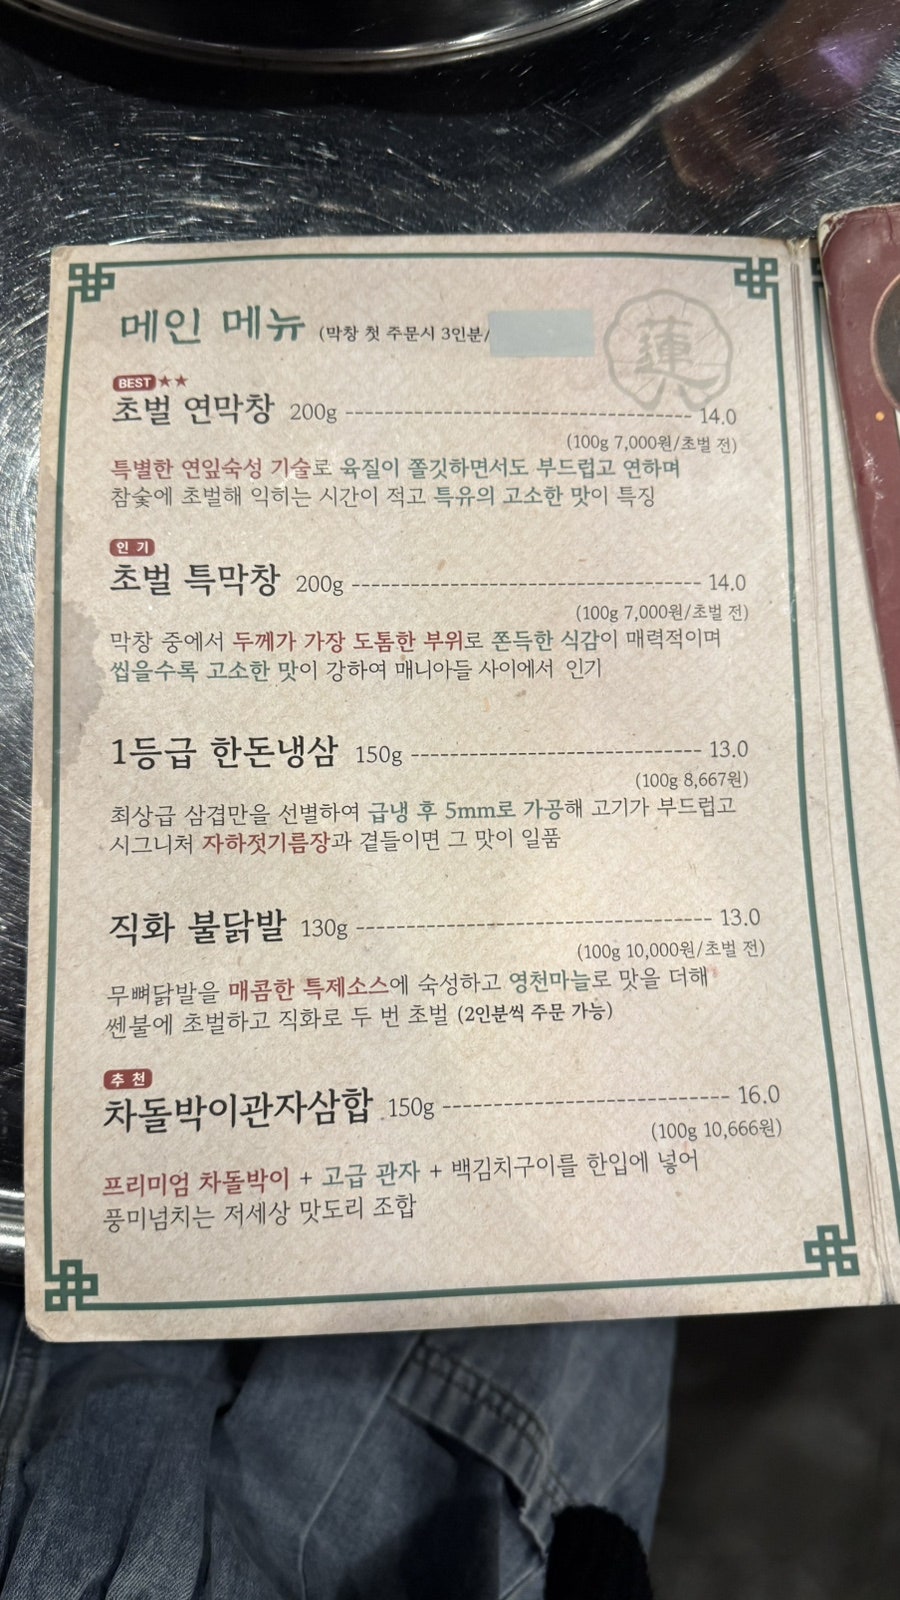 메인 메뉴 (막창 첫 주문시 3인분/
蓮
BEST★★
초벌 연막창 200g ---------- 14.0
(100g 7,000원/초벌 전)
특별한 연잎숙성 기술로 육질이 쫄깃하면서도 부드럽고 연하며
참숯에 초벌해 익히는 시간이 적고 특유의 고소한 맛이 특징
인기
초벌 특막창 200g ---------- 14.0
(100g 7,000원/초벌 전)
막창 중에서 두께가 가장 도톰한 부위로 쫀득한 식감이 매력적이며
씹을수록 고소한 맛이 강하여 매니아들 사이에서 인기
1등급 한돈냉삼 150g ---------- 13.0
(100g 8,667원)
최상급 삼겹만을 선별하여 급냉 후 5mm로 가공해 고기가 부드럽고
시그니처 자하젓기름장과 곁들이면 그 맛이 일품
직화 불닭발 130g ---------- 13.0
(100g 10,000원/초벌 전)
무뼈닭발을 매콤한 특제소스에 숙성하고 영천마늘로 맛을 더해
쎈불에 초벌하고 직화로 두 번 초벌 (2인분씩 주문 가능)
추천
차돌박이관자삼합 150g ---------- 16.0
(100g 10,666원)
프리미엄 차돌박이 + 고급 관자 + 백김치구이를 한입에 넣어
풍미넘치는 저세상 맛도리 조합